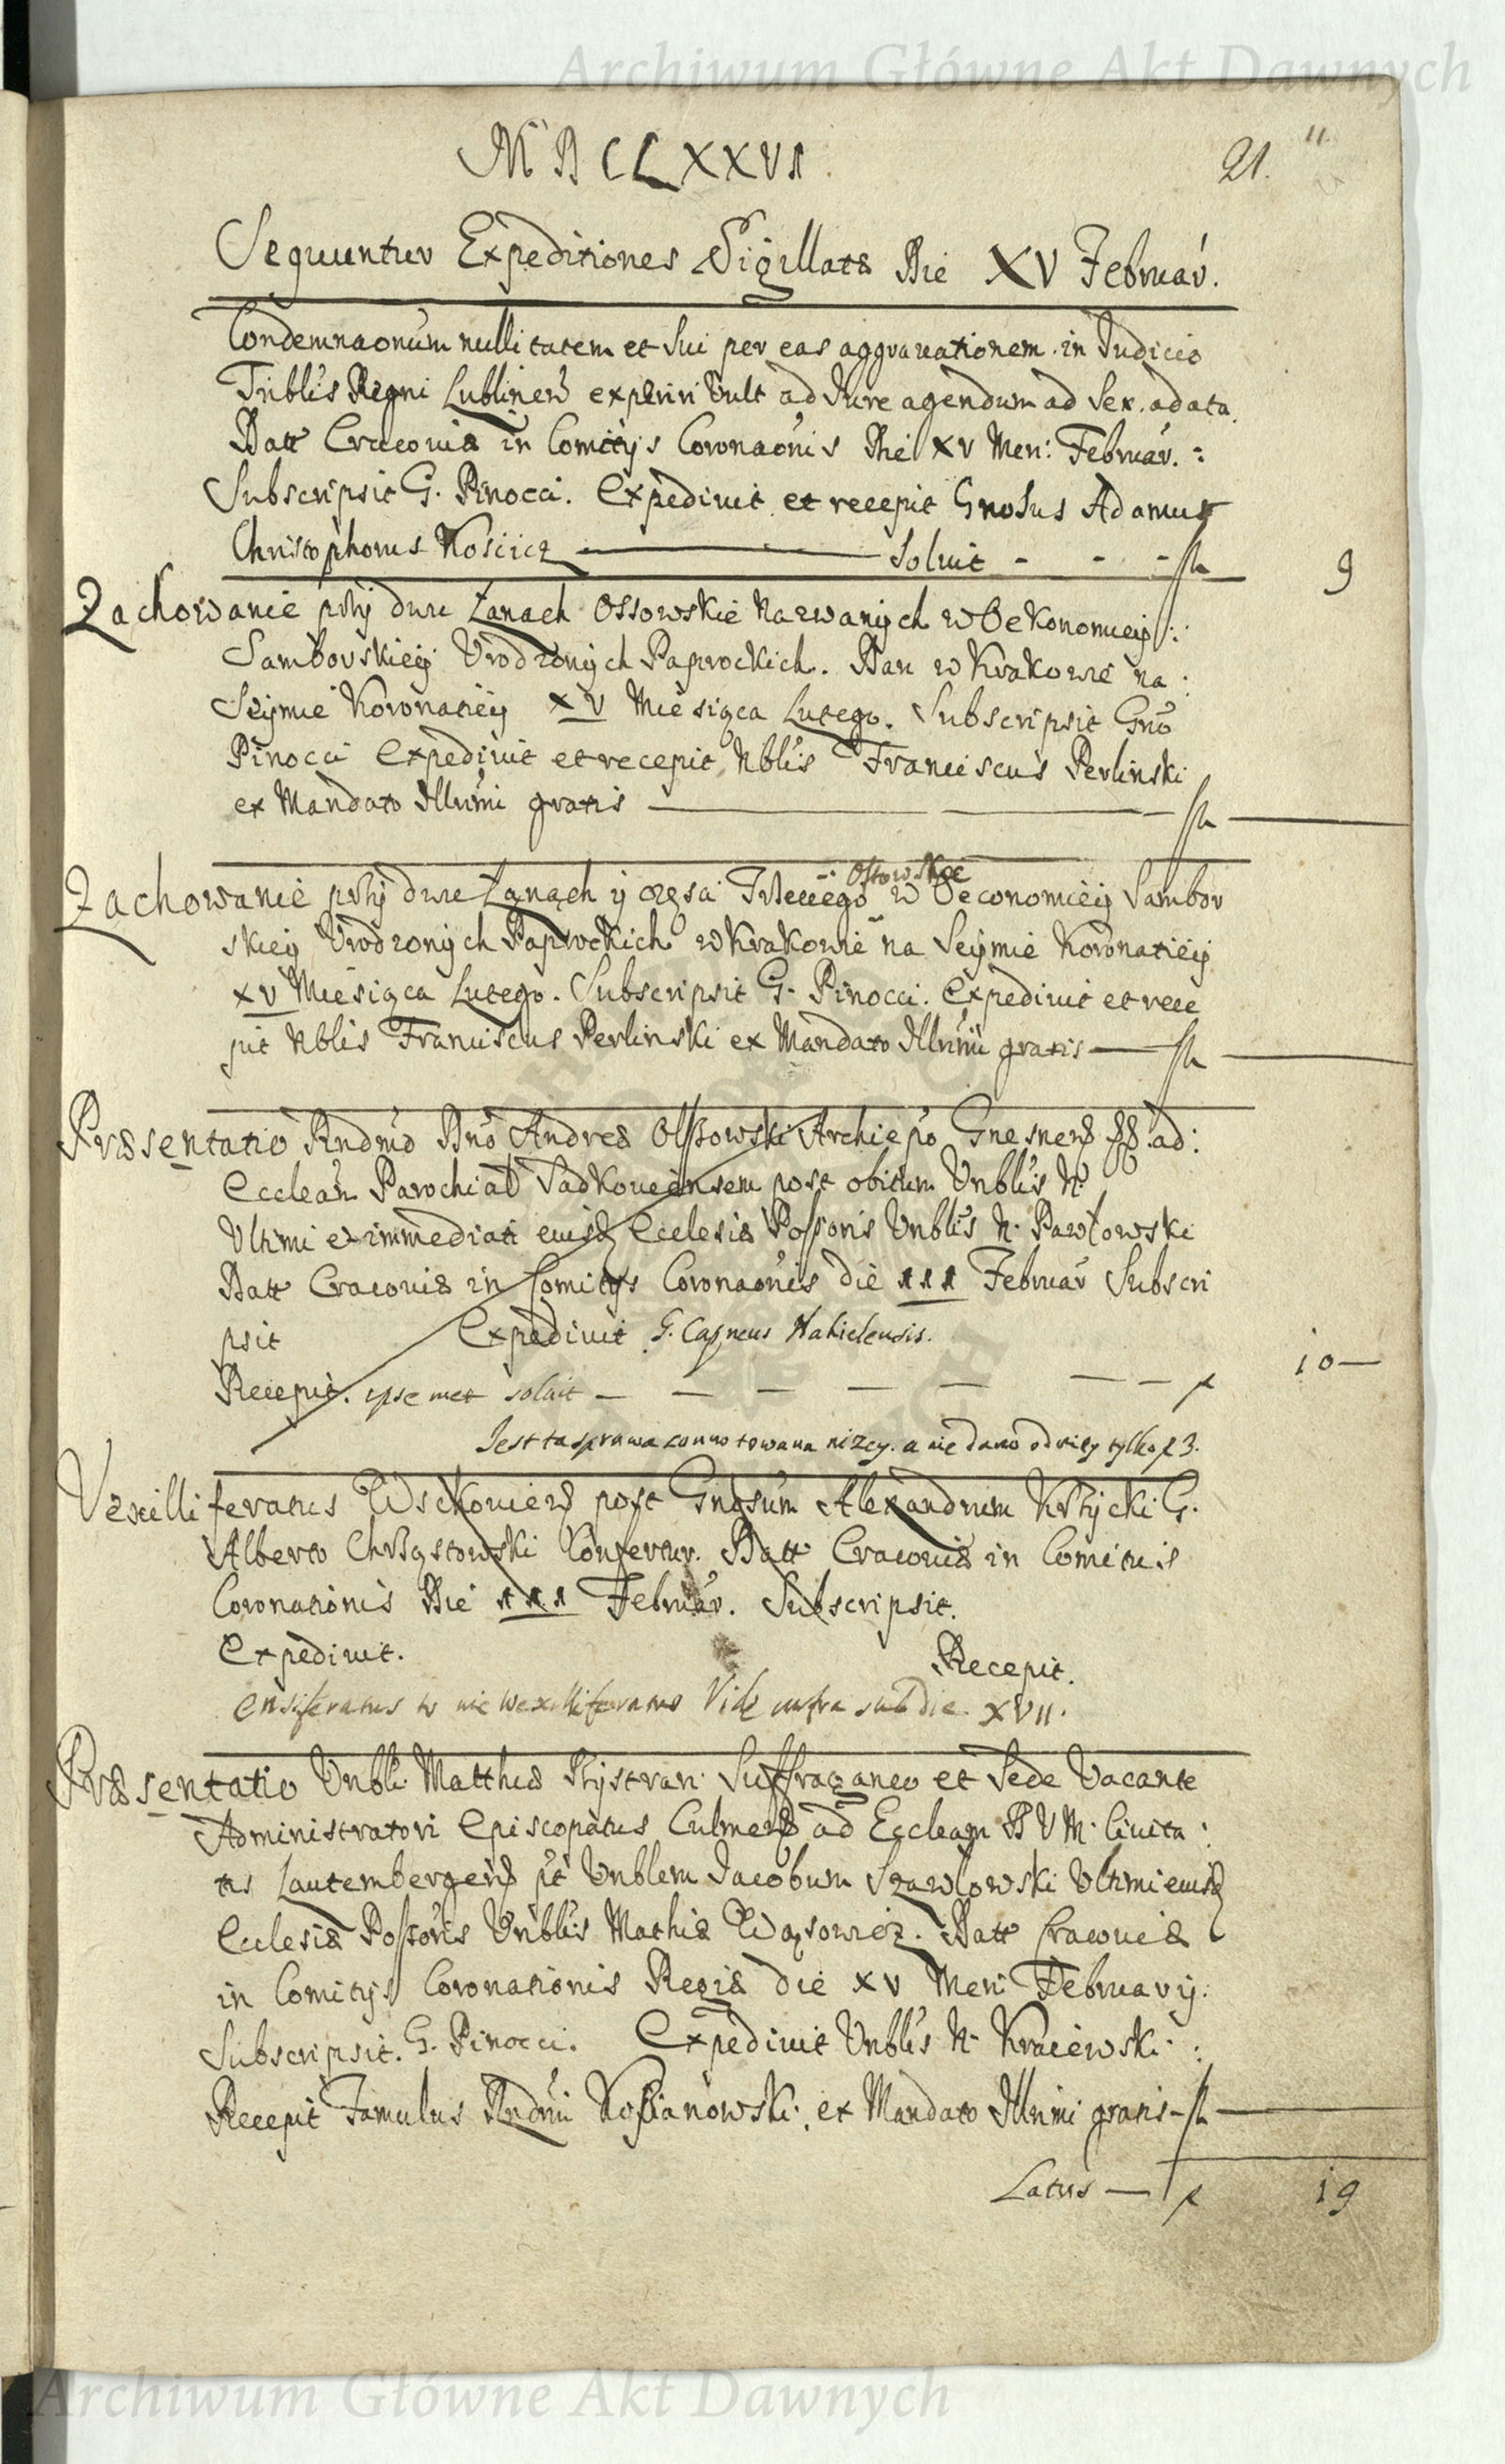 Archiwum Główne Akt Dawnych
MDCLXXVI.
21. 11
Sequuntur Expeditiones Sigillatæ Die XV Februar.
Condemnaonum nullitatem et sui per eas aggrauationem in Judicio
Triblis Regni Lublinen experiri vult ad Jure agendum ad sex. a data
Datt Cracouiæ in Comitijs Coronaonis Die XV Men: Februar. :
Subscripsit G. Pinocci. Expediuit et recepit Gnosus Adamus
Christophorus Kościcz — soluit - - - fl 9
Zachowanie przy dwu Łanach Ossowskie nazwanych w Oekonomiey :
Samborskiey Vrodzonych Paprockich. Dan w Krakowie na :
Seymie Koronatiey XV Miesiąca Lutego. Subscripsit Gno
Pinocci Expediuit et recepit Nblis Franciscus Perlinski
ex Mandato Illrmi gratis — fl —
Ossowskie
Zachowanie przy dwu Łanach y części w Oeconomiey Sambor
skiey Vrodzonych Paprockich w Krakowie na Seymie Koronatiey
XV Miesiąca Lutego. Subscripsit G. Pinocci. Expediuit et rece
pit Nblis Franciscus Perlinski ex Mandato Illrmi gratis — fl —
Præsentatio Rndmo Dno Andreæ Olszowski Archiepo Gnesnen ad :
Eccleam Parochial Sadkouiensem post obitum Vnblis N.
Vltimi et immediati eiusd Ecclesiæ Possoris Vnblis N. Pawłowski
Datt Cracouiæ in Comitijs Coronaonis die Februar Subscri
psit Expediuit G. Capneus Nakielensis.
Recepit. ipse met soluit — — — — — — — f 10 —
Jest ta sprawa connotowana niżey. a nie dano od niey tylko f 3.
Vexilliferatus Wschouien post Gnosum Alexandrum Krzycki G.
Alberto Chrząstowski Confertur. Datt Cracouiæ in Comitiis
Coronationis Die Februar. Subscripsit.
Expediuit. Recepit.
Ensiferatus to nie Wexilliferatus Vide infra sub die XVII.
Præsentatio Vnbli Matthiæ Bystran Suffraganeo et Sede Vacante
Administratori Episcopatus Culmen ad Eccleam B V M. Ciuita :
tis Lautembergen pt Vnblem Jacobum Szawłowski Vltimi eiusd
Ecclesiæ Possoris Vnblis Mathiæ Wąsowicz. Datt Cracouiæ
in Comitijs Coronationis Regiæ die XV Men Februarij.
Subscripsit. G. Pinocci. Expediuit Vnblis N. Kraiewski :
Recepit Famulus Rndmi Kossianowski. ex Mandato Illrmi gratis - fl —
Latus — f 19
Archiwum Główne Akt Dawnych